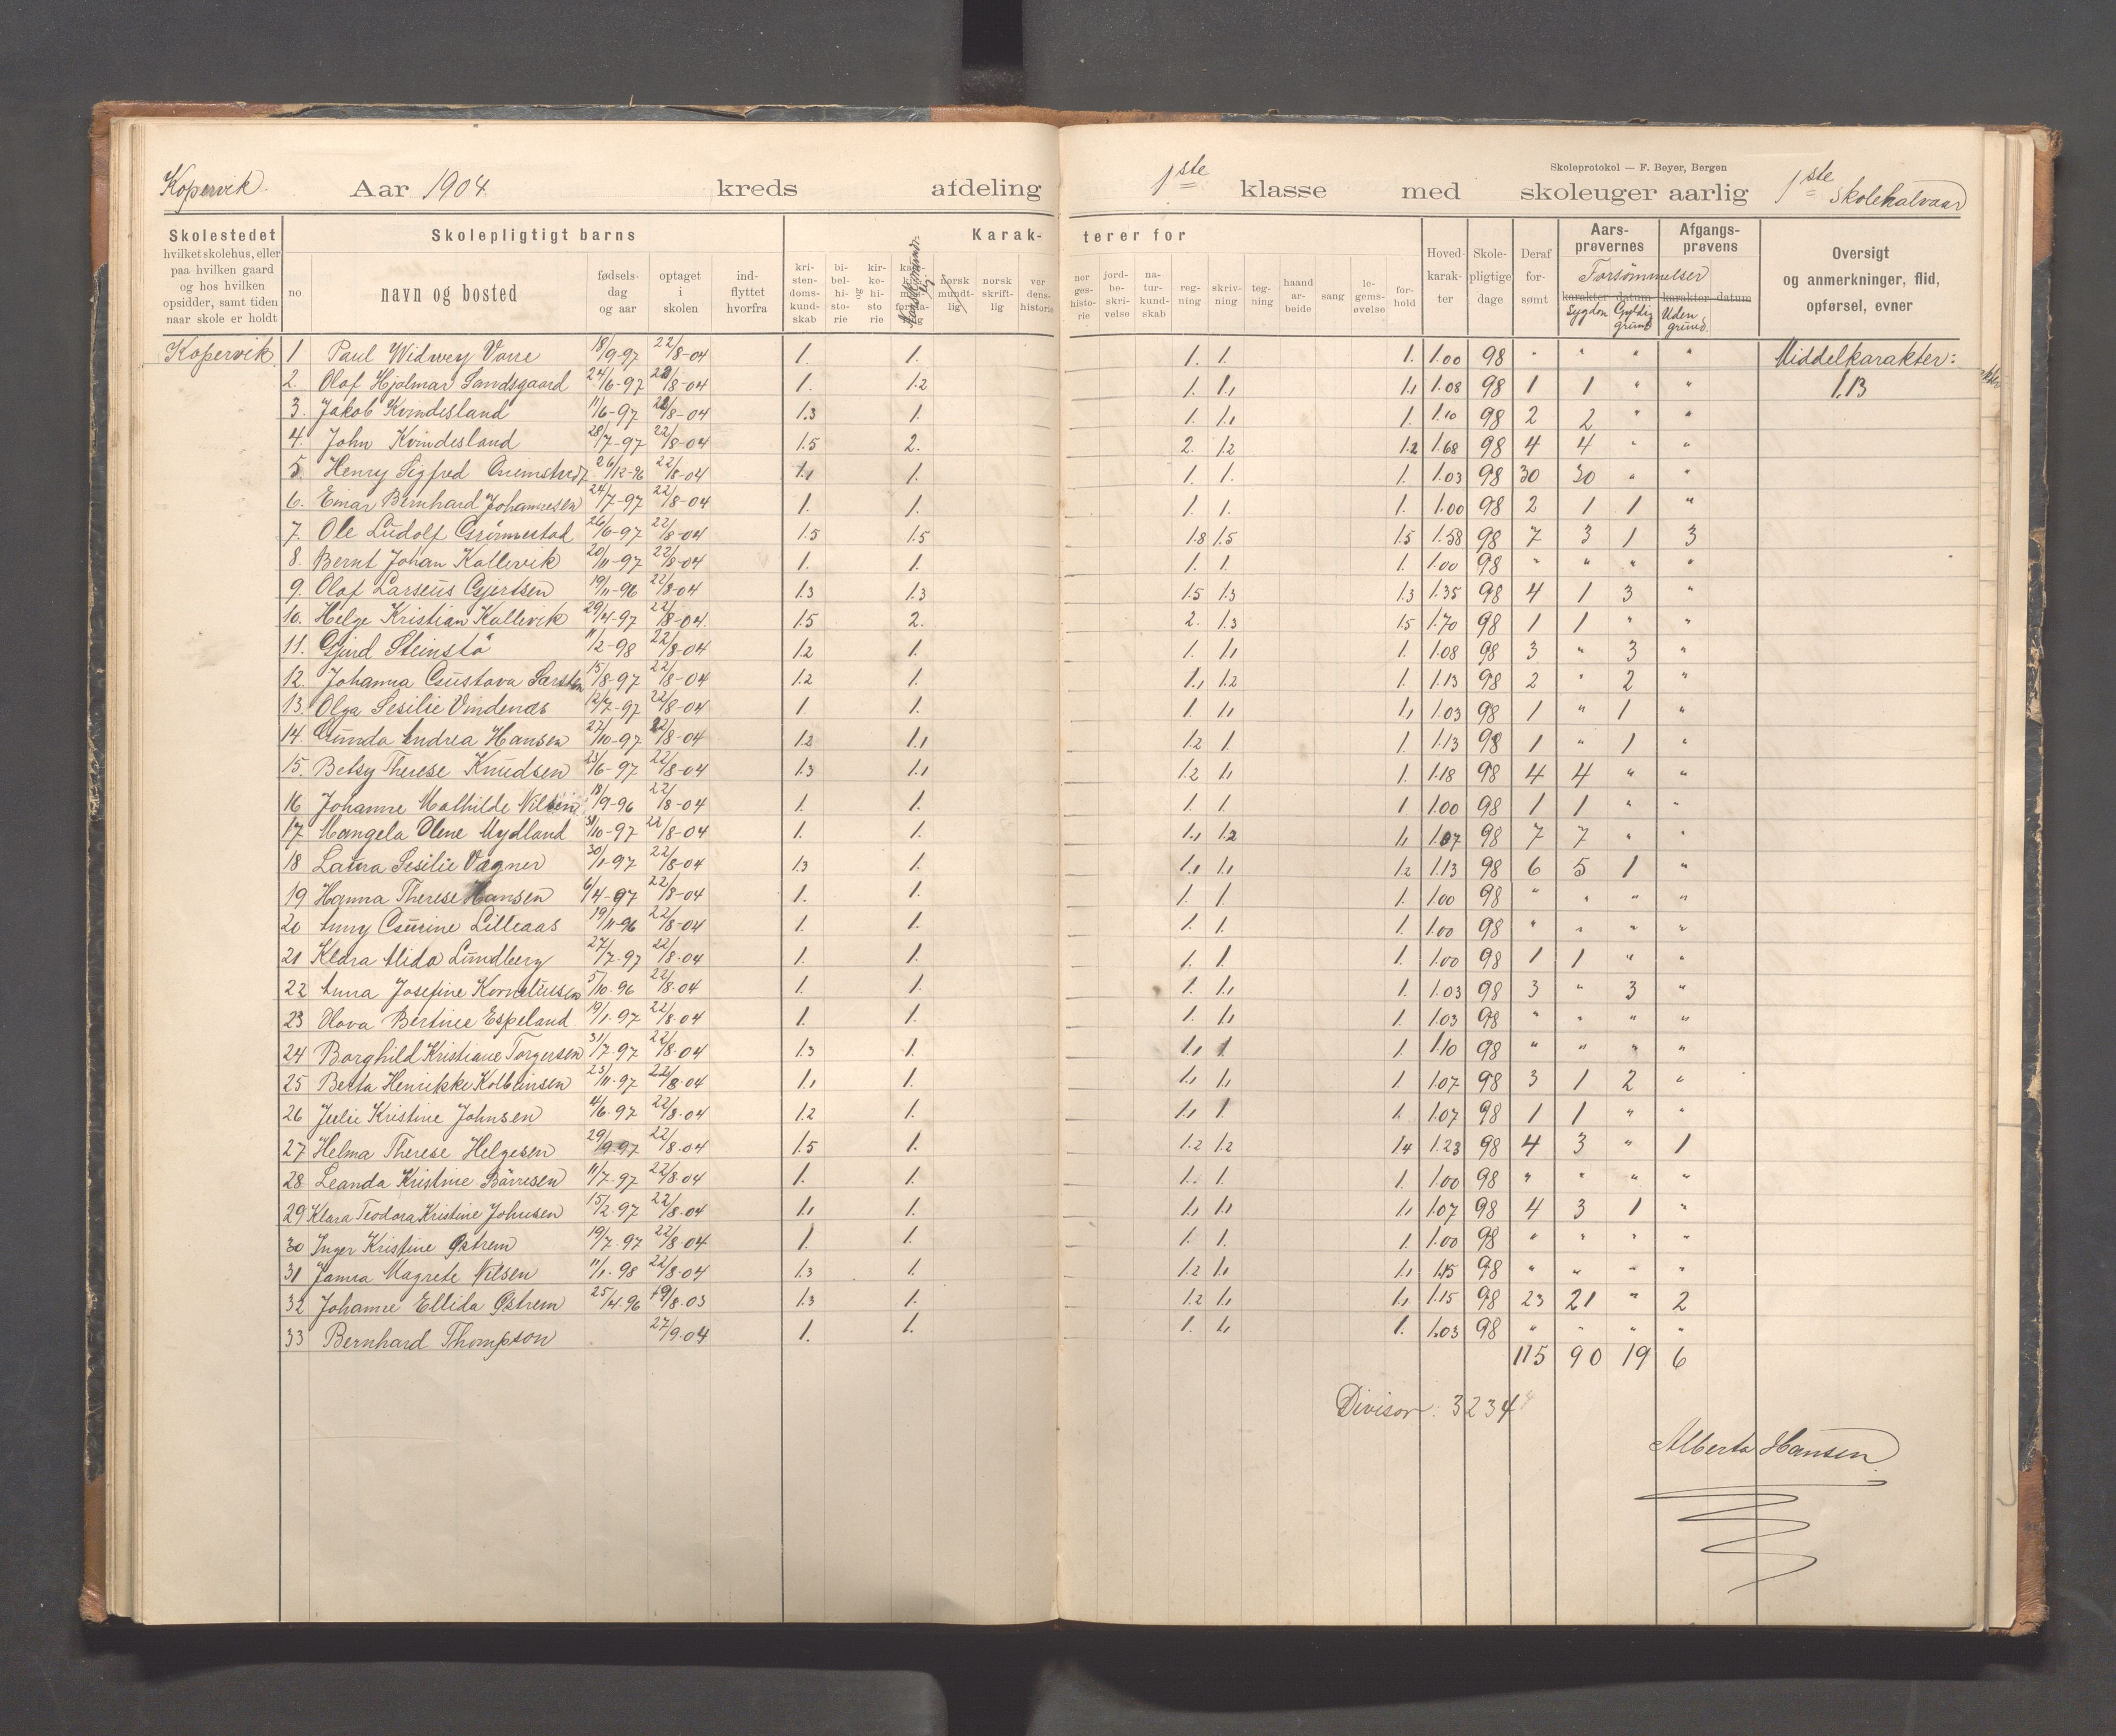 Skoleprotokol — F. Beyer, Bergen
Kopervik. Aar 1904. kreds afdeling 1ste klasse med skoleuger aarlig 1ste Skolehalvaar
Skolestedet Skolepligtigt barns Karak- terer for Hoved- karak- ter Skole- pligtige dage Deraf for- sømt Aars- prøvernes Afgangs- prøvens Oversigt og anmerkninger, flid, opførsel, evner
hvilket skolehus, eller paa hvilken gaard og hos hvilken opsidder, samt tiden naar skole er holdt
no navn og bosted fødsels- dag og aar optaget i skolen ind- flyttet hvorfra
kri- sten- doms- kund- skab bi- bel- hi- sto- rie og kir- ke- hi- sto rie norsk mundt- lig norsk skrift- lig ver dens- historie
nor ges- histo- rie jord- be- skri- velse na- tur- kund- skab reg- ning skriv- ning teg- ning haand ar- beide sang le- gems- øvelse for- hold
Forsømmelser
karakter datum karakter datum
Sygdom Gyldig grund Uden grund.
Kopervik 1 Paul Widwey Vorre 18/9-97 22/8-04 1. 1. 1. 1. 1. 1.00 98 " " " " Middelkarakter:
2. Olaf Hjalmar Sandsgaard 24/6-97 22/8-04 1. 1.2 1. 1.1 1.1 1.08 98 1 1 " " 1,13
3. Jakob Kvindesland 11/6-97 22/8-04 1.3 1. 1. 1.1 1. 1.10 98 2 2 " "
4. John Kvindesland 28/7-97 22/8-04 1.5 2. 2. 1.2 1.2 1.68 98 4 4 " "
5. Henry Sigfred 26/12-96 22/8-04 1.1 1. 1. 1. 1. 1.03 98 30 30 " "
6. Einar Bernhard Johannesen 24/7-97 22/8-04 1. 1. 1. 1. 1. 1.00 98 2 1 1 "
7. Ole Ludolf Grönnestad 26/6-97 22/8-04 1.5 1.5 1.8 1.5 1.5 1.58 98 7 3 1 3
8. Bernt Johan Kallevik 20/11-97 22/8-04 1. 1. 1. 1. 1. 1.00 98 " " " "
9. Olaf Larseus Gjertsen 19/11-96 22/8-04 1.3 1.3 1.5 1.3 1.3 1.35 98 4 1 3 "
10. Helge Kristian Kallevik 29/4-97 22/8-04. 1.5 2. 2. 1.3 1.5 1.70 98 1 1 " "
11. Gjurd Steinstö 11/2-98 22/8-04 1.2 1. 1. 1.1 1. 1.08 98 3 " 3 "
12. Johanna Gustava 15/8-97 22/8-04 1.2 1. 1.1 1.2 1. 1.13 98 2 " 2 "
13. Olga Sesilie Vindenæs 12/7-97 22/8-04 1. 1. 1. 1.1 1.1 1.03 98 1 " 1 "
14. Gunda Andrea Hansen 27/10-97 22/8-04 1.2 1.1 1.2 1. 1. 1.13 98 1 " 1 "
15. Betsy Therese Knudsen 23/6-97 22/8-04 1.3 1.1 1.2 1.1 1. 1.18 98 4 4 " "
16 Johanne Mathilde Nilsen 18/9-96 22/8-04 1. 1. 1. 1. 1 1.00 98 1 1 " "
17. Mangela Olene Mydland 31/10-97 22/8-04 1. 1. 1.1 1.2 1.1 1.07 98 7 7 " "
18 Laura Sesilie Vagner 30/1-97 22/8-04 1.3 1. 1.1 1.1 1.2 1.13 98 6 5 1 "
19 Hanna Therese Hansen 6/4-97 22/8-04 1. 1. 1. 1. 1. 1.00 98 " " " "
20 Anny Gurine Lilleaas 19/11-96 22/8-04 1. 1. 1. 1. 1. 1.00 98 " " " "
21 Klara Alida Lundberg 27/7-97 22/8-04 1. 1. 1. 1 1. 1.00 98 1 1 " "
22 Anna Josefine Korneliusen 5/10.96 22/8.04 1. 1. 1. 1.1 1. 1.03 98 3 " 3 "
23 Olava Bertine Espeland 19/1.97 22/8.04 1. 1. 1. 1.1 1. 1.03 98 " " " "
24 Borghild Kristiane Torgersen 31/7.97 22/8.04 1.3 1. 1.1 1. 1. 1.10 98 " " " "
25 Berta Henrikke Kolbeinsen 23/11.97 22/8.04 1.1 1. 1.1 1.1 1. 1.07 98 3 1 2 "
26 Julie Kristine Johnsen 4/6.97 22/8.04 1.2 1. 1.1 1. 1. 1.07 98 1 1 " "
27 Helma Therese Helgesen 29/9.97 22/8.04 1.5 1. 1.2 1.2 1.4 1.23 98 4 3 " 1
28 Leanda Kristine Börresen 11/7.97 22/8.04 1. 1. 1. 1. 1. 1.00 98 " " " "
29 Klara Teodora Kristine Johnsen 15/2.97 22/8.04 1.1 1. 1.1 1.1 1.1 1.07 98 4 3 1 "
30 Inger Kristine Østrem 19/7.97 22/8.04 1. 1. 1. 1. 1. 1.00 98 " " " "
31 Janna Magrete Nilsen 11/1.98 22/8.04 1.3 1. 1.2 1.1 1.1 1.15 98 " " " "
32 Johanne Ellida Østrem 25/4.96 19/8.03 1.3 1. 1.2 1.1 1.1 1.15 98 23 21 " 2
33 Bernhard Thompson 27/9.04 1. 1. 1. 1.1 1. 1.03 98 " " " "
115 90 19 6
Divisor: 3234
Alberta Hansen